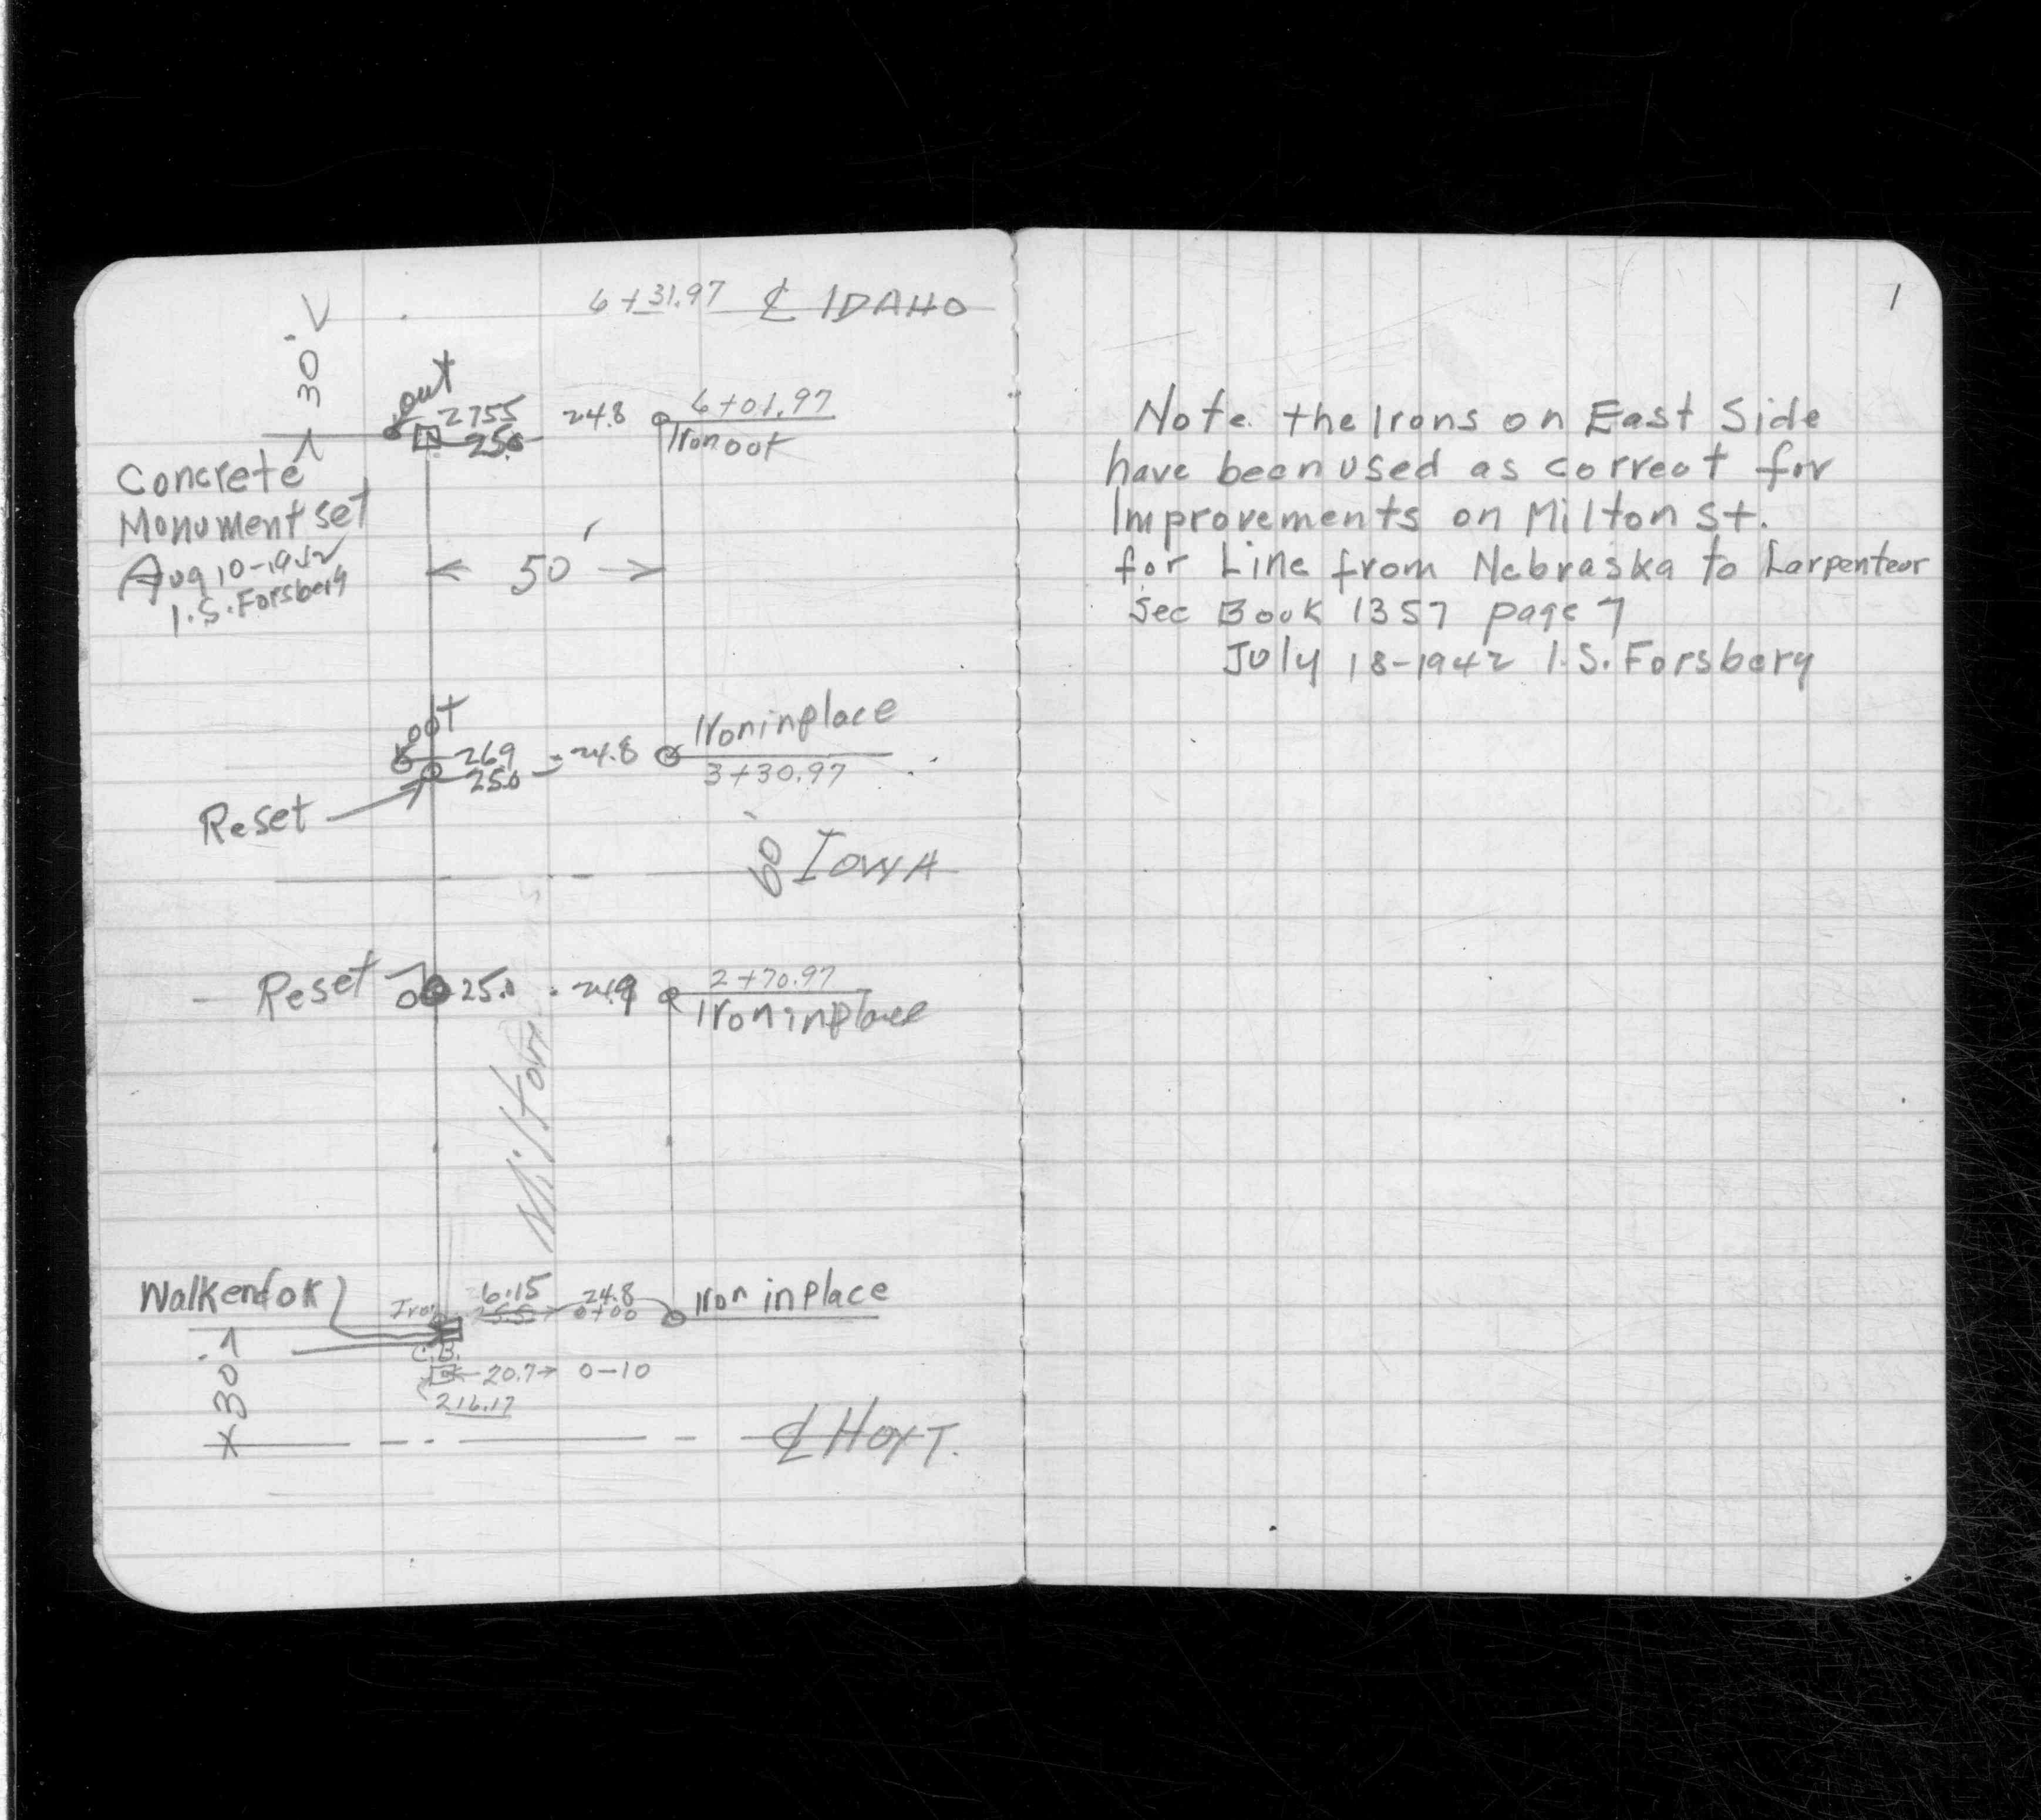 6+31.97 ℄ IDAHO
30'
out
2755 24.8 6+01.97
25.0 Iron out
Concrete
Monument set
Aug 10-1942
I.S. Forsberg
50'
out
26.9 24.8 Iron in place
25.0 3+30.97
Reset
60' IOWA
Reset 25.0 24.9 2+70.97
Iron in place
Milton
Walk end OK 6.15 24.8 Iron in place
Iron 25.5 0+00
C.B.
30' 20.7 0-10
216.17
℄ HOYT.
1
Note the Irons on East Side
have been used as correct for
Improvements on Milton St.
for Line from Nebraska to Larpenteur
See Book 1357 page 7
July 18-1942 I.S. Forsberg